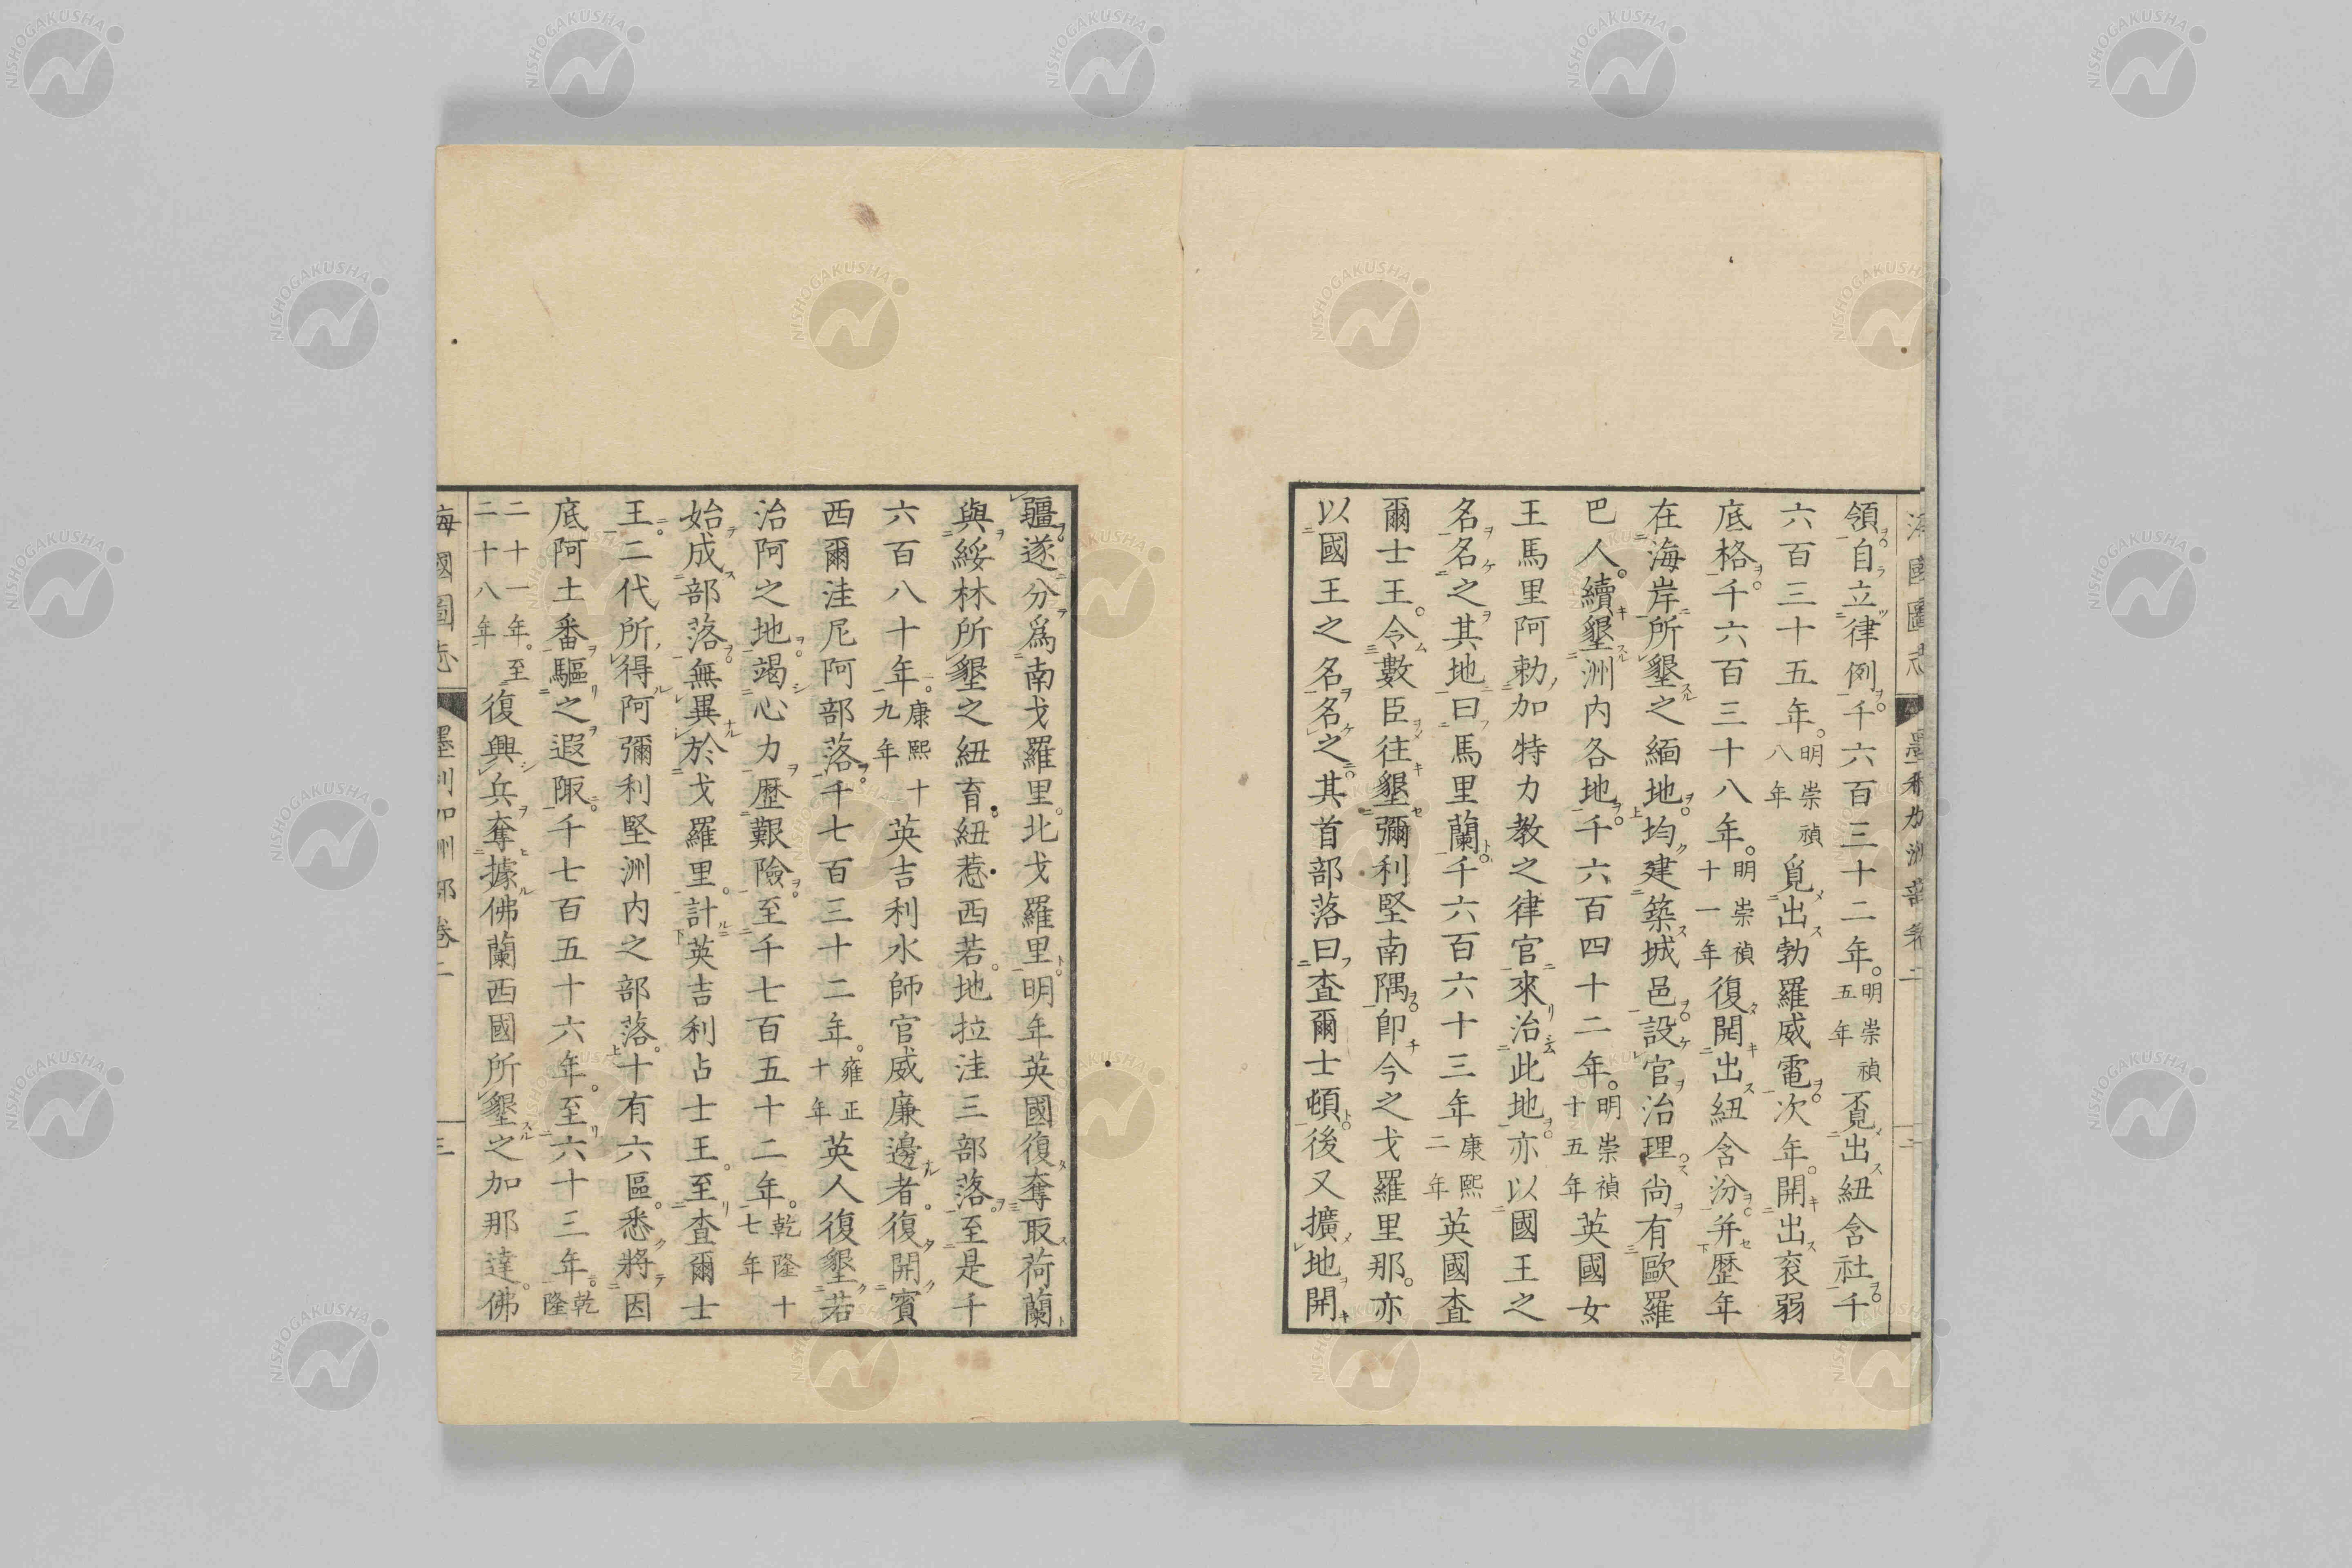 海國圖志 墨利加洲部卷二 二
領自立律例千六百三十二年明崇禎五年覔出紐含社千
六百三十五年明崇禎八年覓出勃羅威電次年開出袞弱
底格千六百三十八年明崇禎十一年復開出紐含汾并歷年
在海岸所墾之緬地均建築城邑設官治理尚有歐羅
巴人續墾洲内各地千六百四十二年明崇禎十五年英國女
王馬里阿勅加特力教之律官來治此地亦以國王之
名名之其地曰馬里蘭千六百六十三年康熙二年英國查
爾士王令數臣往墾彌利堅南隅卽今之戈羅里那亦
以國王之名名之其首部落曰查爾士頓後又擴地開
疆遂分爲南戈羅里北戈羅里明年英國復奪取荷蘭
與綏林所墾之紐育紐惹西若地拉洼三部落至是千
六百八十年康熙十九年英吉利水師官威廉邊者復開賓
西爾洼尼阿部落千七百三十二年雍正十年英人復墾若
治阿之地竭心力歴艱險至千七百五十二年乾隆十七年
始成部落無異於戈羅里計英吉利占士王至查爾士
王二代所得阿彌利堅洲内之部落十有六區悉將因
底阿土番驅之遐陬千七百五十六年至六十三年乾隆
二十一年至二十八年復興兵奪據佛蘭西國所墾之加那達佛
海國圖志 墨利加洲部卷二 三
NISHOGAKUSHA